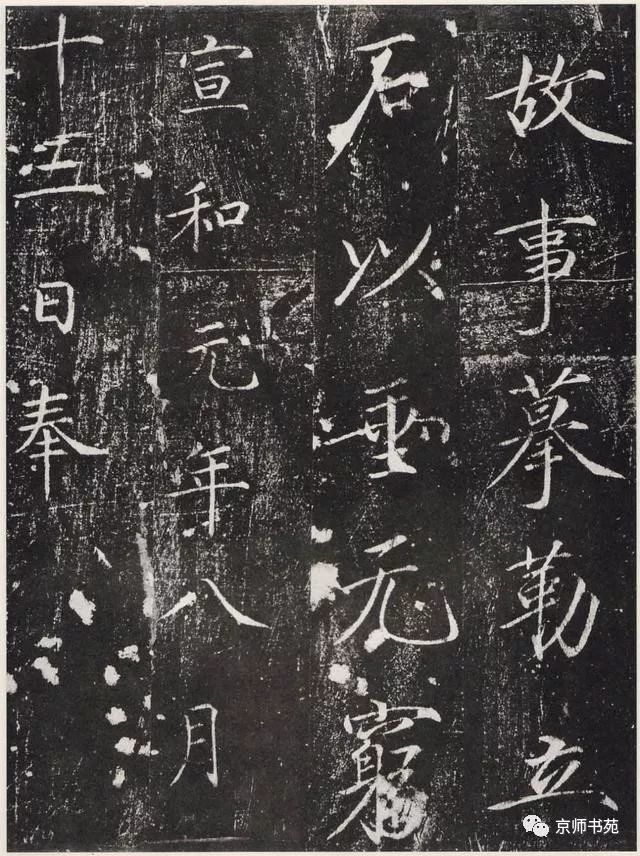 故事摹勒立
石以垂无窮
宣和元年八月
十五日奉
京师书苑